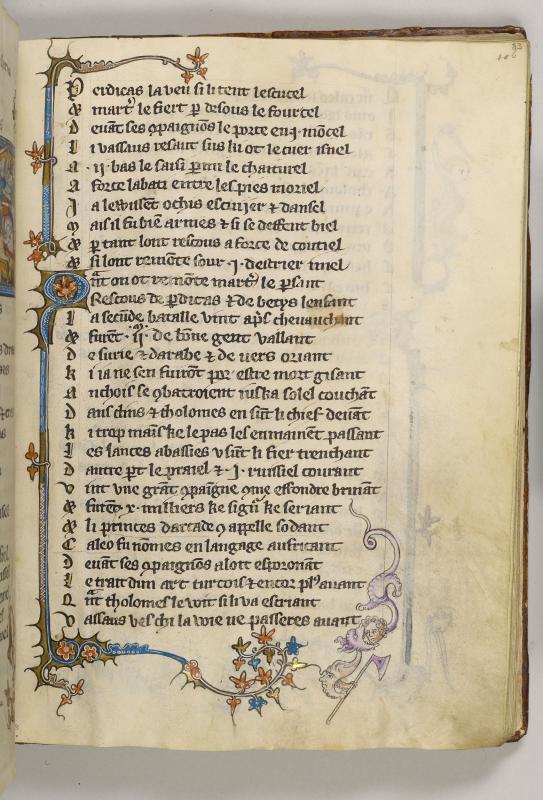 P erdicas la veu si li tent lescucel
& mart' le fiert p̄ desous le fourcel
D euāt ses ꝯpaignōs le porte en .i. mōcel
L i vassaus resaut sus ki ot le cuer isnel
A .ii. bas le saisi parmi le
A force labati entre les pies moriel
J a leuuissent ochis escuier & dansel
M ais il fu biē armes & si se deffent biel
& p̄ tant lont rescous a force de coutiel
& si lont remōte sour .i. destrier inel
Q ̄nt on ot remōte mart' le p̄sant
Rescous de p̄dicas & de betys lenfant
L a secūde batalle vint ap̄s cheuauchant
& furēt .ii. de bōne gent vallant
D e surie & darabe & de uers oriant
K i ia ne sen fuirōt por estre mort gisant
A nchois se ꝯbatroient iuska solel couchāt
D ans clins & tholomes en sūt li chief deuāt
K i trop mais ke le pas les enmainēt passant
L es lances abassies v sūt li fier trenchant
D autre p̄t le praiel & .i. ruissiel courant
V int vne grāt ꝯpaigne ꝯme effondre bruiāt
& furēt .x. milliers ke ke seriant
& li princes darcade ꝯ appelle sodant
C aleo fu nōmes en langage aufricant
D euāt ses ꝯpaignons aloit esporonāt
L e trait dun arc turcois & encor pl' auant
Q ̄nt tholomes le voit si li va escriant
V assaus ves chi la voie ne passeres auant